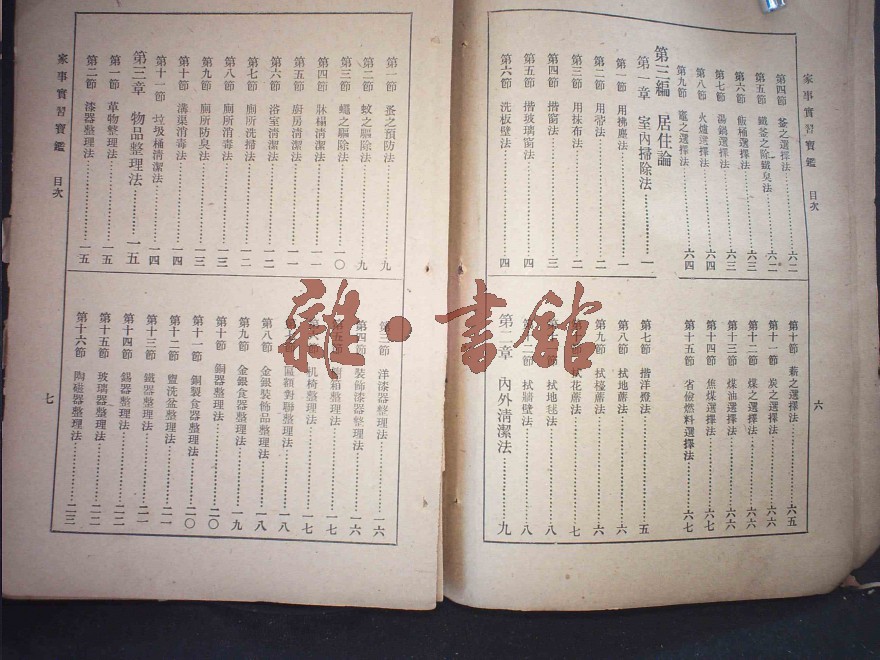 家事實習寶鑑 目次
第四節 釜之選擇法………六二
第五節 鐵釜之除鐵臭法………六二
第六節 飯桶選擇法………六三
第七節 湯鍋選擇法………六三
第八節 火爐選擇法………六四
第九節 竈之選擇法………六四
第三編 居住論
第一章 室內掃除法………一
第一節 用拂塵法………一
第二節 用帚法………二
第三節 用抹布法………二
第四節 揩窗法………三
第五節 揩玻璃窗法………四
第六節 洗板壁法………四
第十節 薪之選擇法………六五
第十一節 炭之選擇法………六六
第十二節 煤之選擇法………六六
第十三節 煤油選擇法………六六
第十四節 焦煤選擇法………六七
第十五節 省儉燃料選擇法………六七
第七節 揩洋燈法………五
第八節 拭地蓆法………六
第九節 拭檯蓆法………六
拭花蓆法………七
拭地毯法………八
拭牆壁法………八
第二章 內外清潔法………九
六
家事實習寶鑑 目次
第一節 蚤之預防法………九
第二節 蚊之驅除法………九
第三節 蠅之驅除法………一〇
第四節 牀榻清潔法………一一
第五節 廚房清潔法………一一
第六節 浴室清潔法………一二
第七節 廁所洗掃法………一二
第八節 廁所消毒法………一三
第九節 廁所防臭法………一三
第十節 溝渠消毒法………一四
第十一節 垃圾桶清潔法………一四
第三章 物品整理法………一五
第一節 草物整理法………一五
第二節 漆器整理法………一五
第三節 洋漆器整理法………一六
第四節 裝飾漆器整理法………一六
箱整理法………一七
机椅整理法………一七
匾額對聯整理法………一八
第八節 金銀裝飾品整理法………一八
第九節 金銀食器整理法………一九
第十節 銅器整理法………二〇
第十一節 銅製食器整理法………二〇
第十二節 盥洗盆整理法………二一
第十三節 鐵器整理法………二一
第十四節 錫器整理法………二二
第十五節 玻璃器整理法………二二
第十六節 陶磁器整理法………二三
七
雜·書館